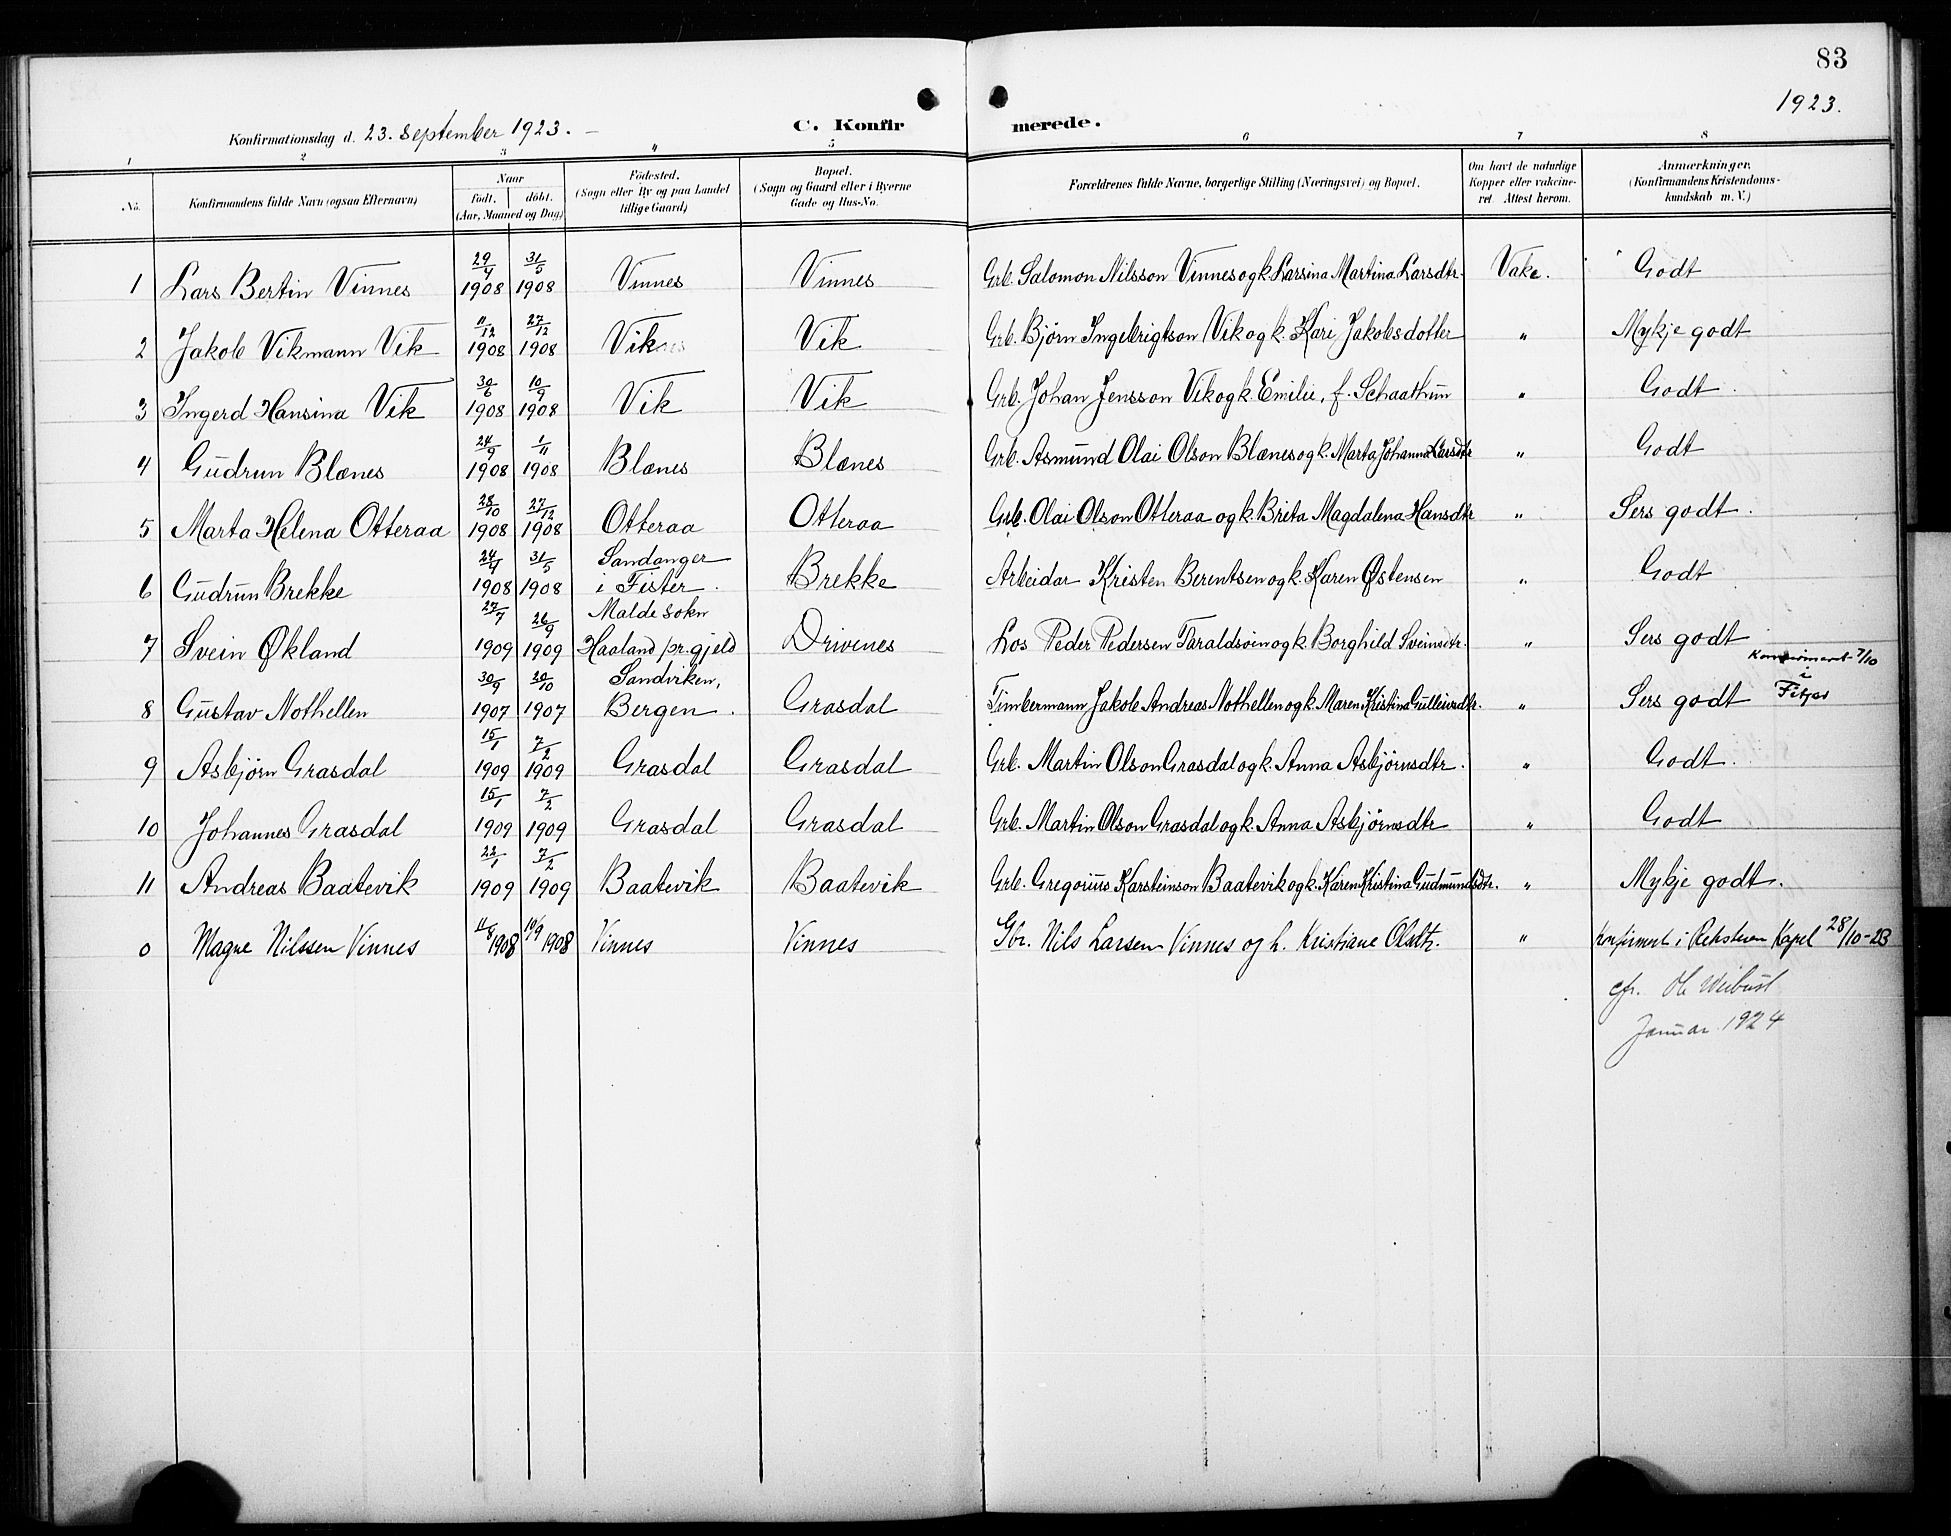 83
1923.
Konfirmationsdag d. 23. September 1923. –
C. Konfirmerede.
1 2 3 4 5 6 7 8
No.
Konfirmandens fulde Navn (ogsaa Efternavn)
Naar
født. døbt.
(Aar, Maaned og Dag)
Fødested.
(Sogn eller By og paa Landet
tillige Gaard)
Bopæl.
(Sogn og Gaard eller i Byerne
Gade og Hus-No.
Forældrenes fulde Navne, borgerlige Stilling (Næringsvei) og Bopæl.
Om havt de naturlige
Kopper eller vakcine-
ret. Attest herom.
Anmærkninger.
(Konfirmandens Kristendoms-
kundskab m. V.)
1 Lars Bertin Vinnes 29/4 1908 31/5 1908 Vinnes Vinnes Grb. Salomon Nilsson Vinnes og k. Larsina Martina Larsdtr. Vakc. Godt
2 Jakob Vikmann Vik 11/12 1908 27/12 1908 Vik Vik Grb. Bjørn Ingebrigtson Vik og k. Kari Jakobsdotter " Mykje godt
3 Ingerd Hansina Vik 30/6 1908 10/9 1908 Vik Vik Grb. Johan Jensson Vik og k. Emilie, f. Schaathun " Godt
4 Gudrun Blænes 24/9 1908 1/11 1908 Blænes Blænes Grb. Asmund Olai Olson Blænes og k. Marta Johanna Larsdtr " Godt
5 Marta Helena Otteraa 28/10 1908 27/12 1908 Otteraa Otteraa Grb. Olai Olson Otteraa og k. Brita Magdalena Hansdtr " Sers godt.
6 Gudrun Brekke 24/4 1908 31/5 1908 Sandanger i Fister. Brekke Arbeidar Kristen Berentsen og k. Karen Østensen " Godt
7 Svein Økland 27/7 1909 26/9 1909 Malde sokn Haaland pr.gjeld Drivenes Los Peder Pedersen Taraldsøin og k. Borghild Sveinsdtr. " Sers godt
8 Gustav Nothellen 30/9 1907 20/10 1907 Sandviken, Bergen. Grasdal Timbermann Jakob Andreas Nothellen og k. Maren Kristina Gulleivsdtr. " Sers godt Konfirmert 7/10 i Fitjar
9 Asbjørn Grasdal 15/1 1909 7/2 1909 Grasdal Grasdal Grb. Martin Olson Grasdal og k. Anna Asbjørnsdtr. " Godt.
10 Johannes Grasdal 15/1 1909 7/2 1909 Grasdal Grasdal Grb. Martin Olson Grasdal og k. Anna Asbjørnsdtr " Godt
11 Andreas Baatevik 22/1 1909 7/2 1909 Baatevik Baatevik Grb. Gregorius Karsteinson Baatevik og k. Karen Kristina Gudmundsdtr. " Mykje godt.
0 Magne Nilssen Vinnes 11/8 1908 19/9 1908 Vinnes Vinnes Gbr. Nils Larsen Vinnes og h. Kristiane Olsdtr. " konfirmert i Reksteren Kapel 28/10-23
cfr. Ole Weibust
Januar 1924